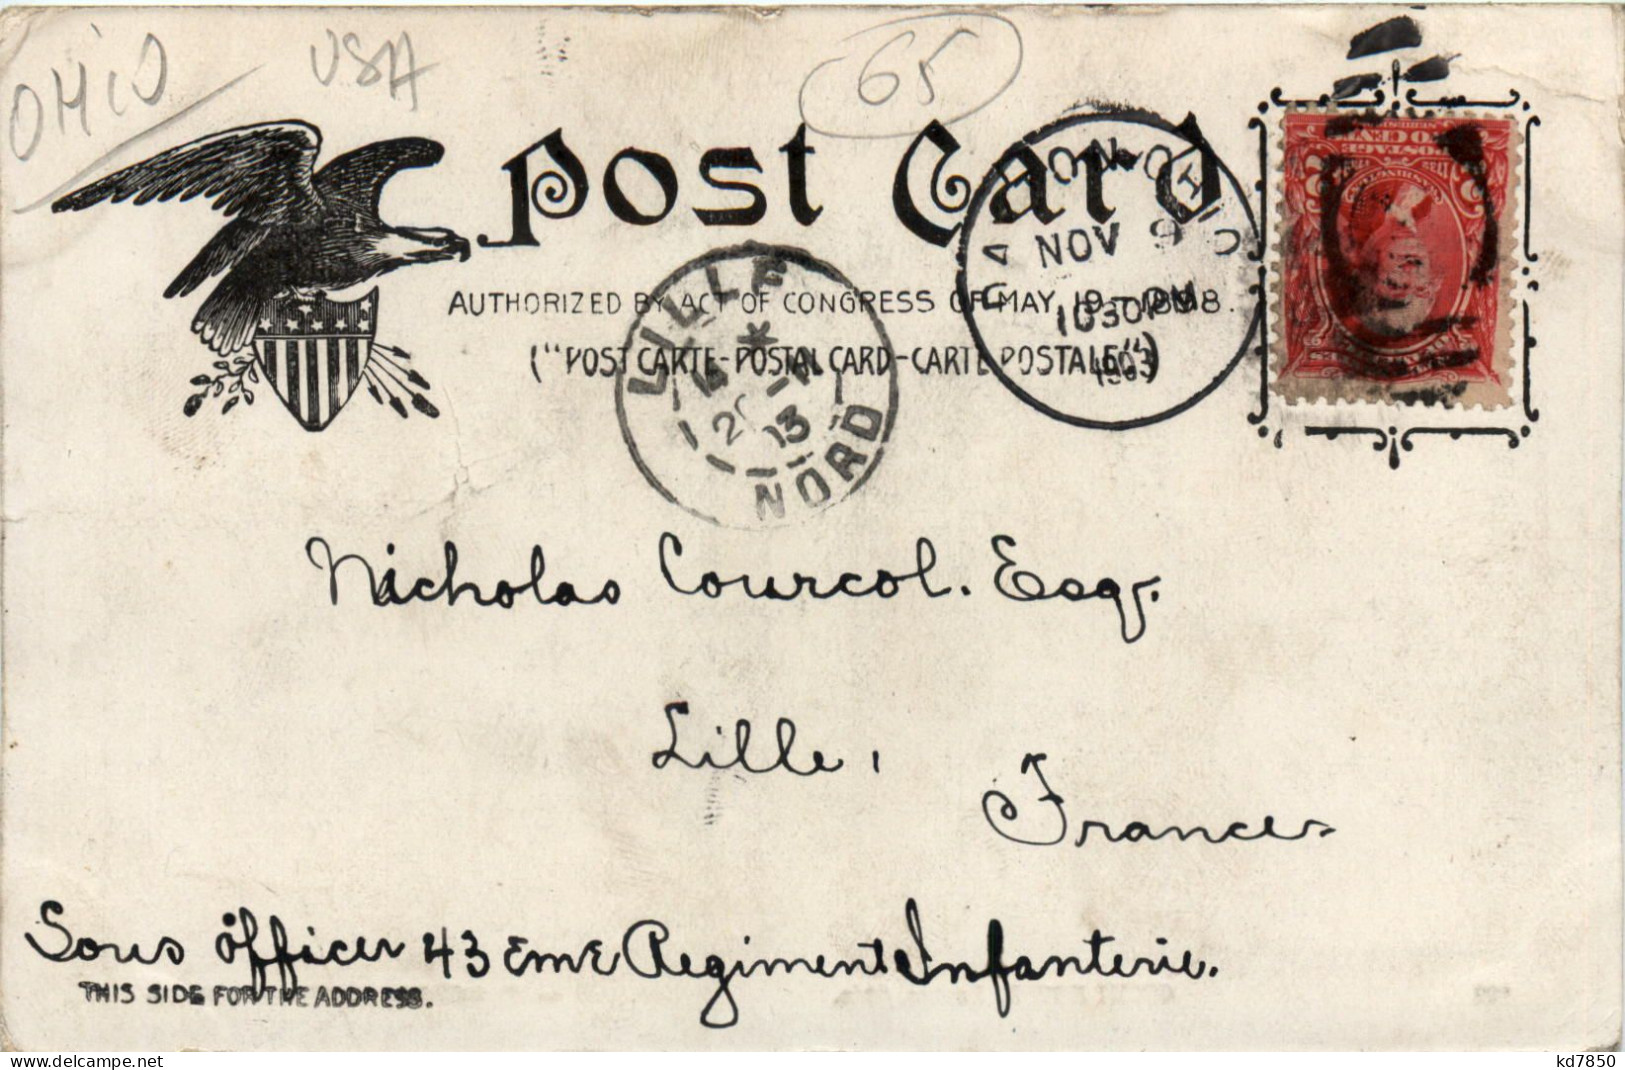 OHIO USA 65
Post Card
CANTON, OHIO
NOV 9
1030 PM
1903
AUTHORIZED BY ACT OF CONGRESS OF MAY, 19-1898.
("POST CARTE-POSTAL CARD-CARTE POSTALE")
LILLE
NORD
Nicholas Courcol. Esqr.
Lille,
France
Sous officer 43 eme Regiment Infanterie.
THIS SIDE FOR THE ADDRESS.
www.delcampe.net
kd7850